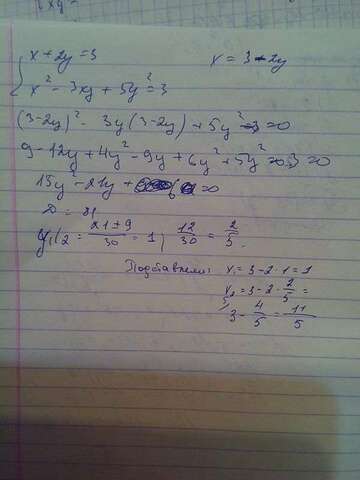 x + 2y = 3 x = 3 - 2y
x² - 3xy + 5y² = 3
(3-2y)² - 3y(3-2y) + 5y² - 3 = 0
9 - 12y + 4y² - 9y + 6y² + 5y² - 3 = 0
15y² - 21y + 6 = 0
D = 81
y₁,₂ = (21 ± 9)/30 = 1; 12/30 = 2/5.
Подставляем: x₁ = 3 - 2 · 1 = 1
x₂ = 3 - 2 · 2/5 =
= 3 - 4/5 = 11/5